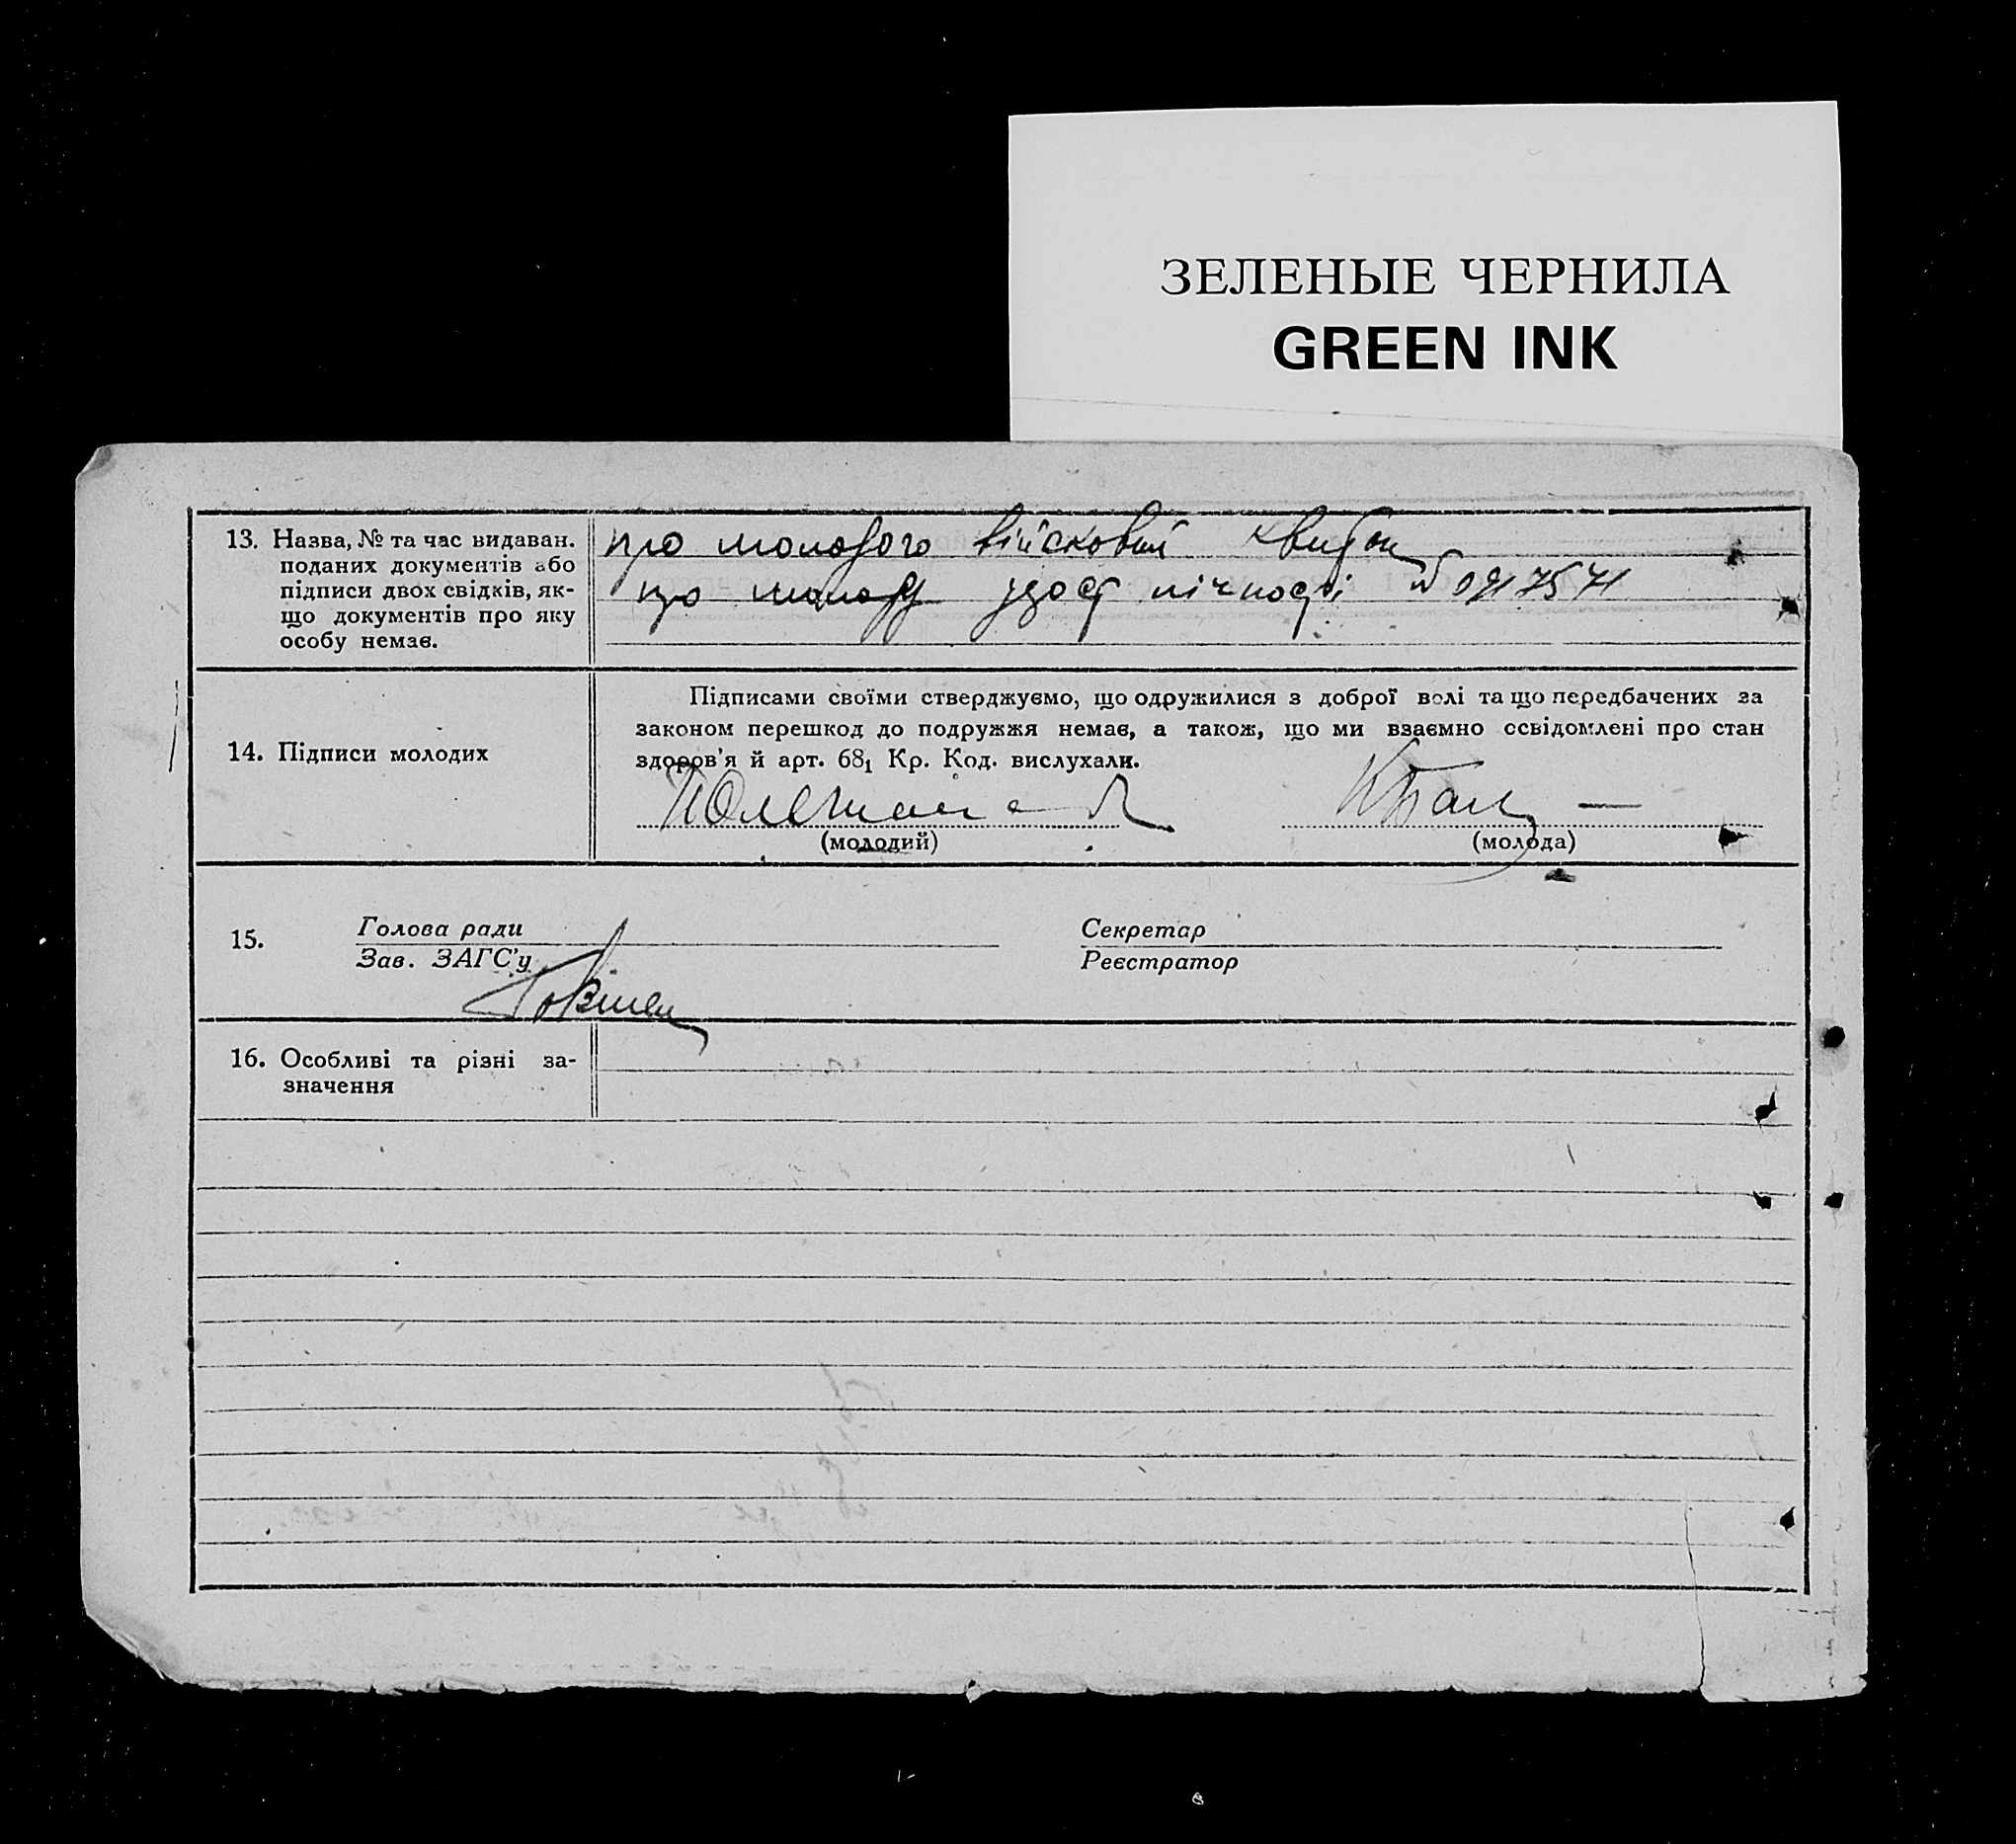 ЗЕЛЕНЫЕ ЧЕРНИЛА
GREEN INK
13. Назва, № та час видаван.
поданих документів або
підписи двох свідків, як-
що документів про яку
особу немає.
про молодого військовий квиток
про молоду удост лічності № 0917571
14. Підписи молодих
Підписами своїми стверджуємо, що одружилися з доброї волі та що передбачених за
законом перешкод до подружжя немає, а також, що ми взаємно освідомлені про стан
здоров'я й арт. 68₁ Кр. Код. вислухали.
(молодий) (молода)
15. Голова ради Секретар
Зав. ЗАГС'у Реєстратор
16. Особливі та різні за-
значення